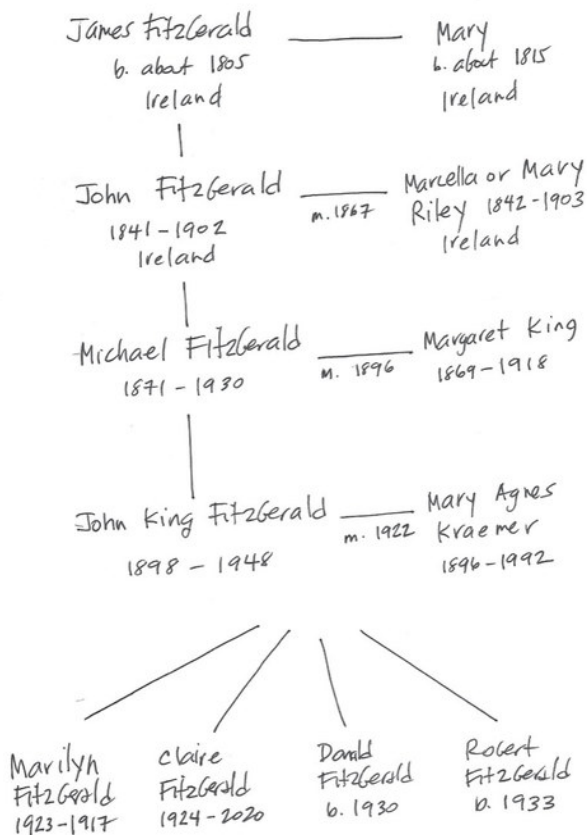 James FitzGerald
b. about 1805
Ireland
Mary
b. about 1815
Ireland
John FitzGerald
1841-1902
Ireland
m. 1867
Marcella or Mary
Riley 1842-1903
Ireland
Michael FitzGerald
1871-1930
m. 1896
Margaret King
1869-1918
John King FitzGerald
1898 - 1948
m. 1922
Mary Agnes
Kraemer
1896-1992
Marilyn
FitzGerald
1923-1917
Claire
FitzGerald
1924-2020
Donald
FitzGerald
b. 1930
Robert
FitzGerald
b. 1933